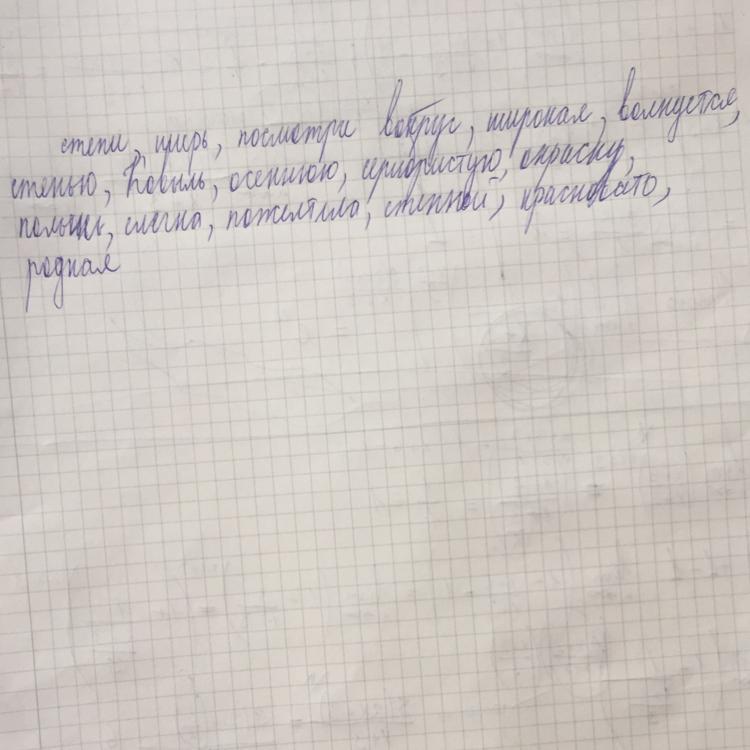 степи, ширь, посмотри вокруг, широкая, волнуется,
степью, ковыль, осеннюю, серибристую, окраску,
полынь, слегка, пожелтела, степной, красновато,
родная